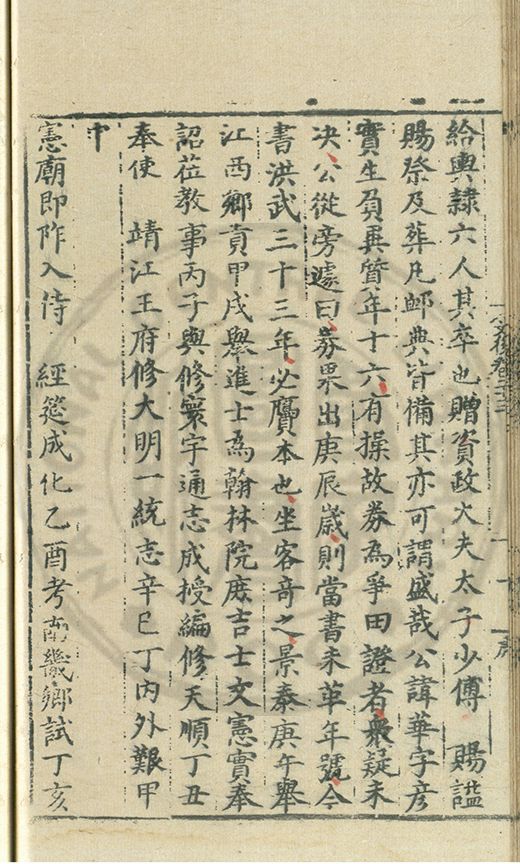 給輿隷六人其卒也贈資政大夫太子少傅 賜諡
賜祭及葬凡邮典皆備其亦可謂盛哉公諱華字彦
實生負再質年十六有操故券為爭田證者衆疑未
决公從旁遽曰券果出庚辰歳則當書未革年號今
書洪武三十三年必贗本也坐客奇之景泰庚午舉
江西鄉貢甲戌舉進士為翰林院庶吉士文憲實奉
詔莅教事丙子與修寰宇通志成授編修天順丁丑
奉使 靖江王府修大明一統志辛巳丁内外艱甲
申
憲廟即阼入侍 經筵成化乙酉考南畿鄉試丁亥